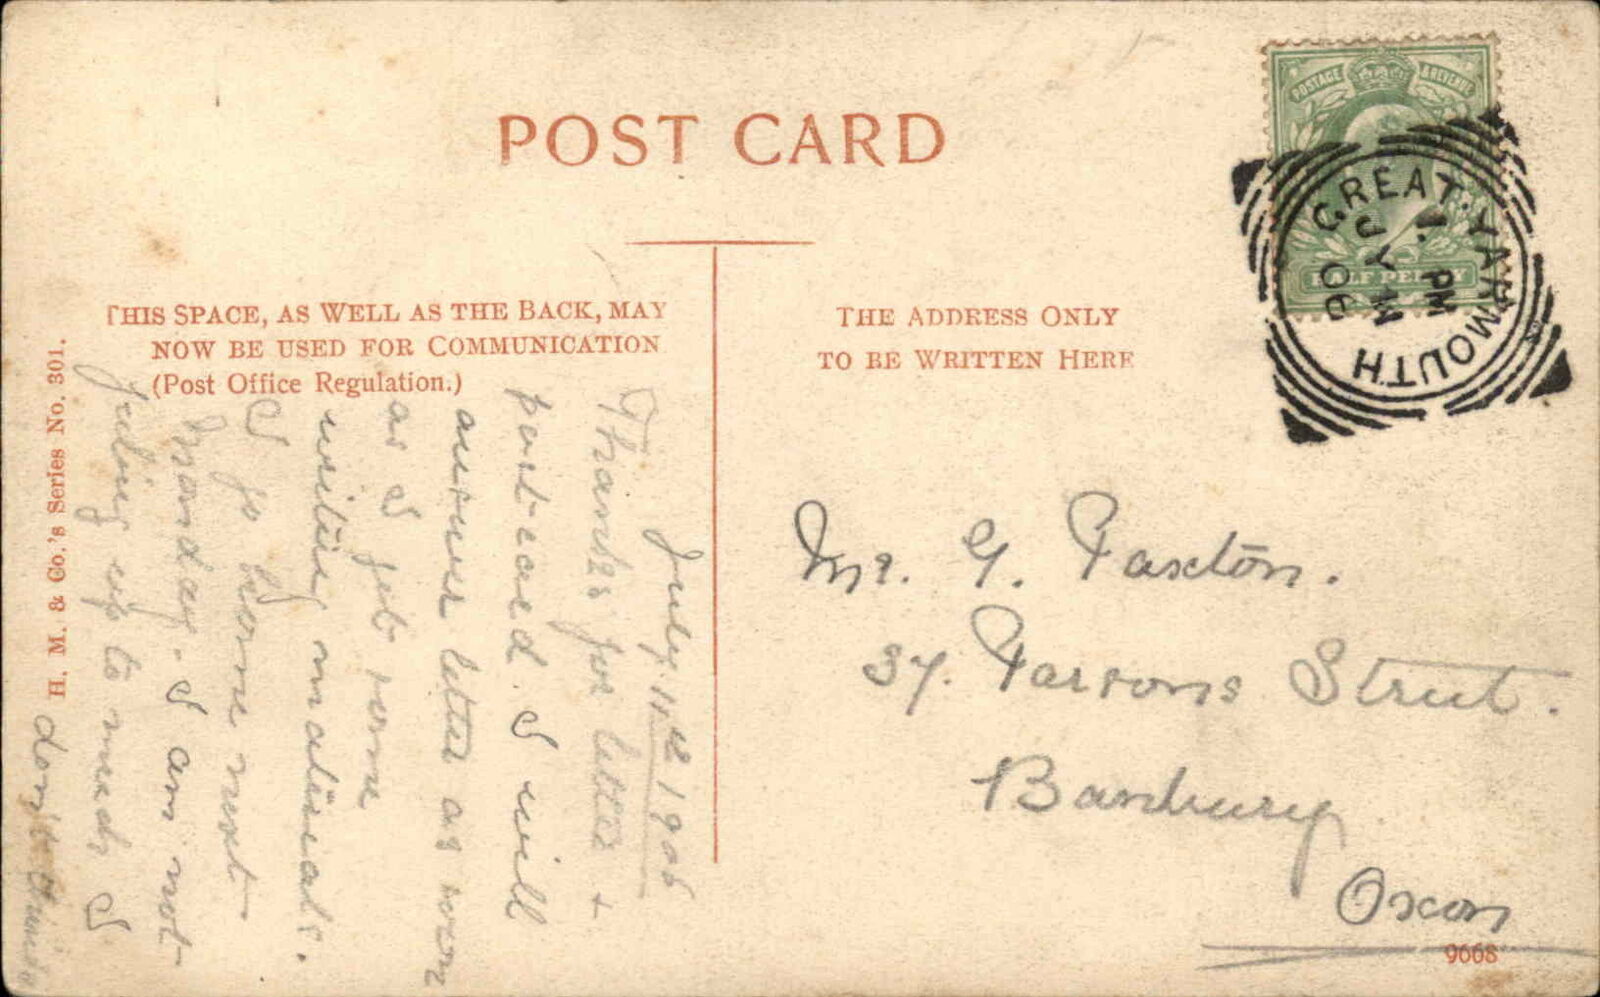 POST CARD
THIS SPACE, AS WELL AS THE BACK, MAY
NOW BE USED FOR COMMUNICATION
(Post Office Regulation.)
THE ADDRESS ONLY
TO BE WRITTEN HERE
H. M. & Co.'s Series No. 301.
POSTAGE & REVENUE
HALF PENNY
GREAT YARMOUTH
PM
JY
06
Mr. G. Paxton.
37. Parsons Street.
Banbury
Oxon
9668
July 1906
Thanks for letter +
postcard. I will
answer letter as soon
as I get some
writing materials.
I go home next
Monday. I am not
feeling up to much I
don't think